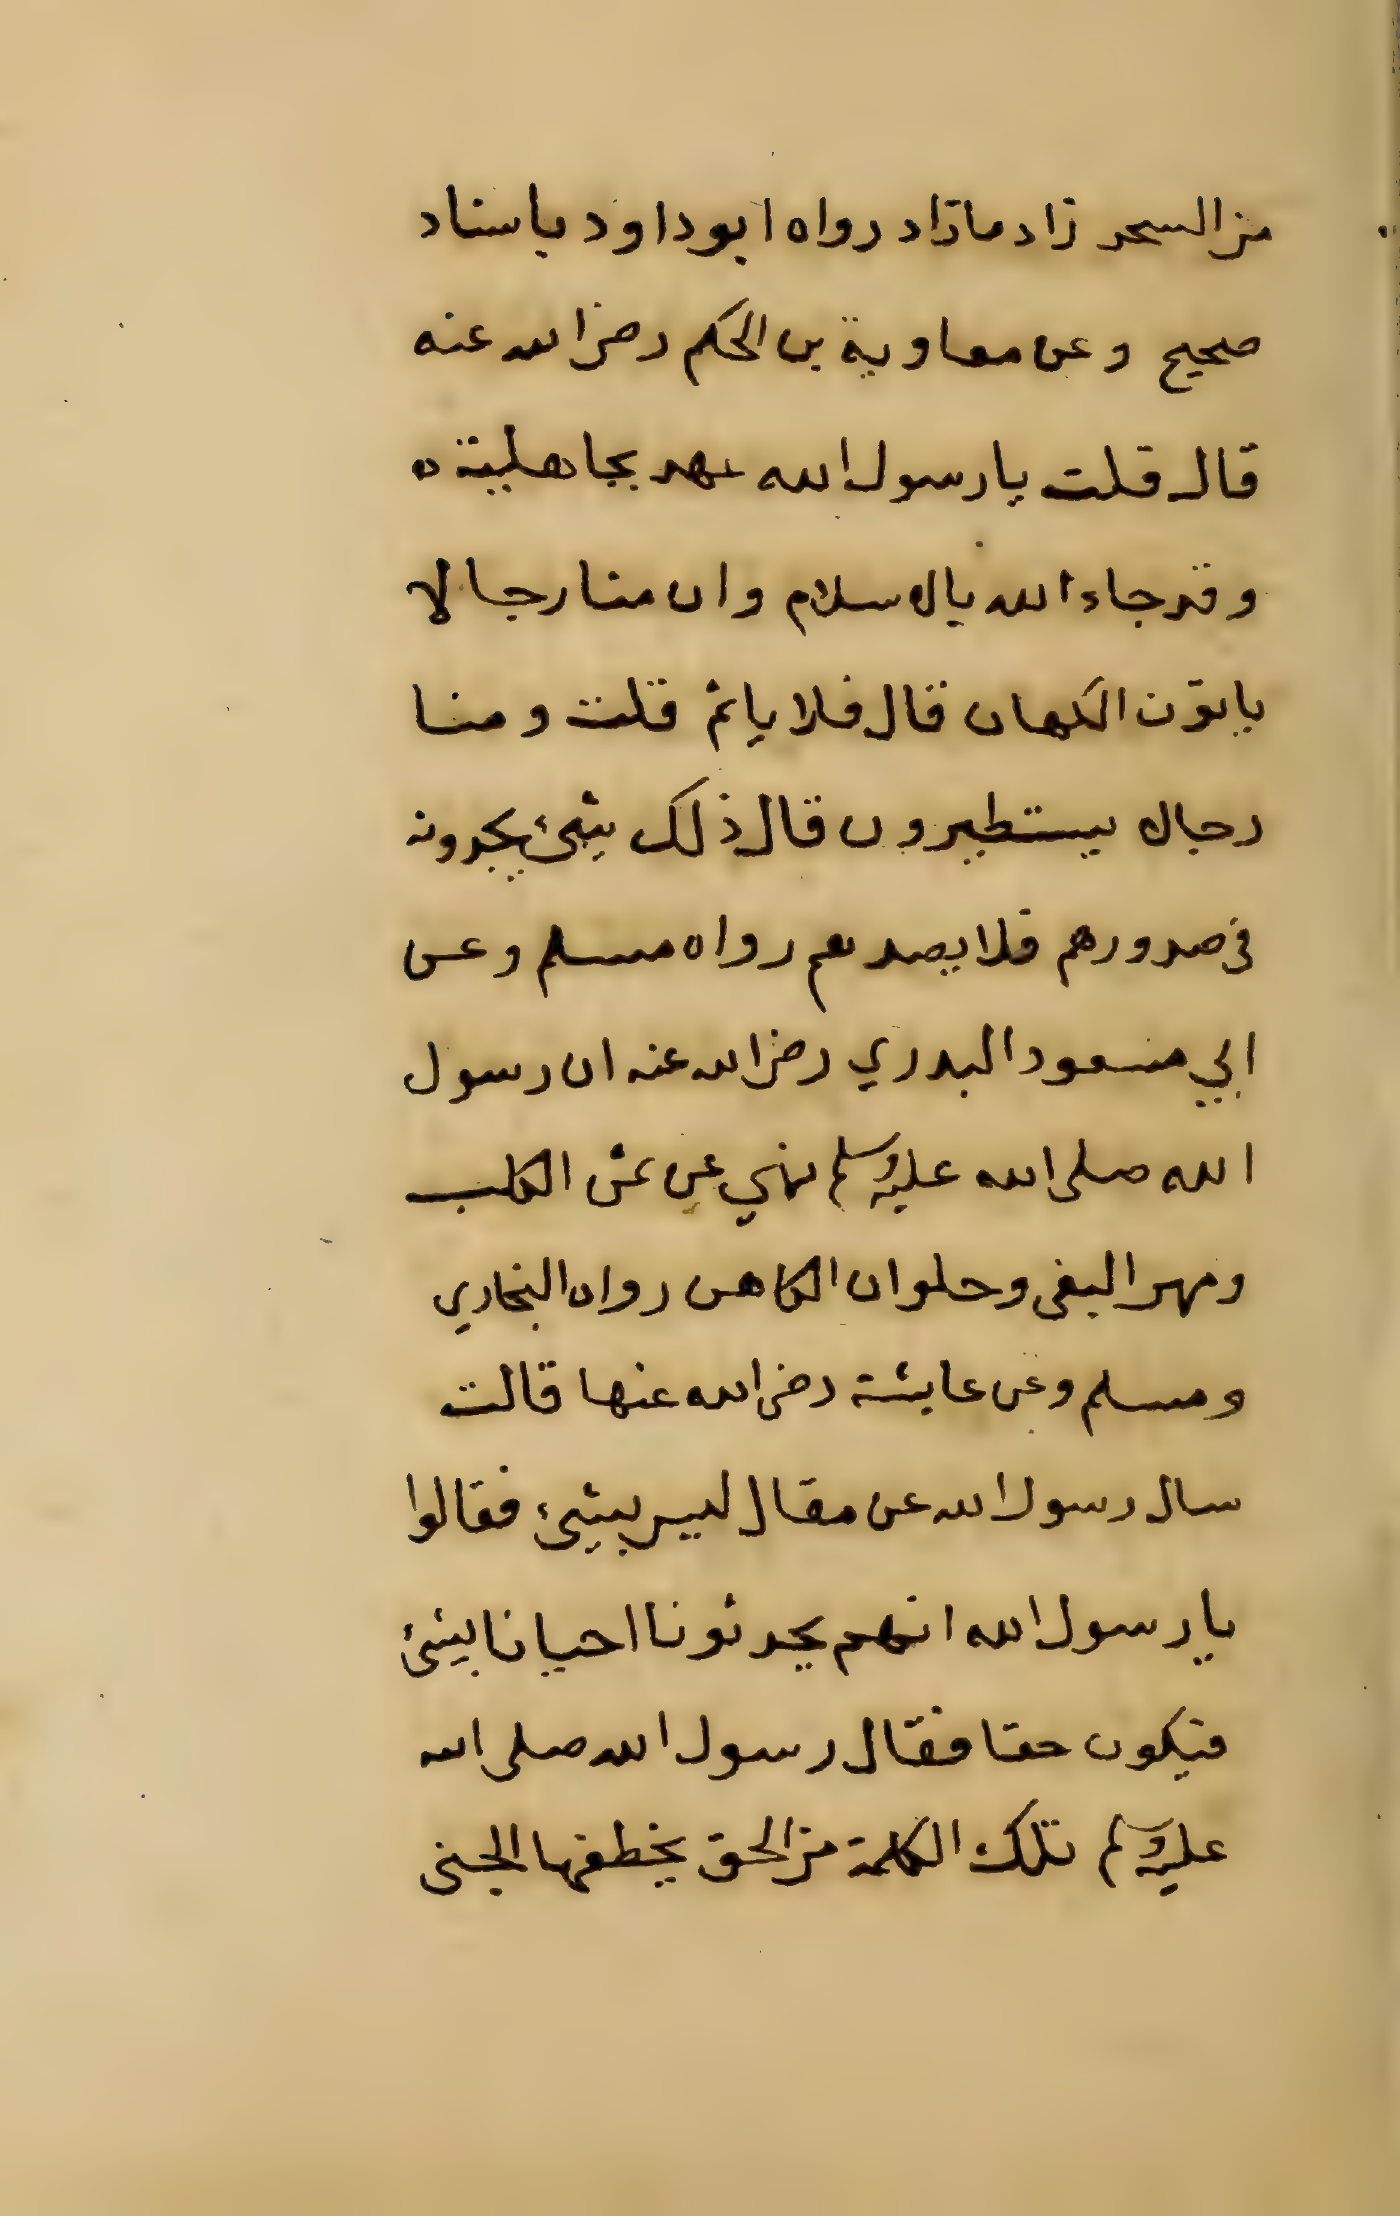 من السحر زاد مازاد رواه ابوداود باسناد
صحيح وعن معاوية بن الحكم رضي الله عنه
قال قلت يارسول الله عهد بجاهلية ه
وقد جاء الله بالاسلام وان منا رجالا
ياتون الكهان قال فلا ياتم قلت ومنا
رجال يستطيرون قال ذلك شئ يجدونه
في صدورهم فلا يصدهم رواه مسلم وعن
ابي مسعود البدري رضي الله عنه ان رسول
الله صلى الله عليه وسلم نهي عن ثمن الكلب
ومهر البغى وحلوان الكاهن رواه البخاري
ومسلم وعن عايشة رضى الله عنها قالت
سال رسول الله عن مقال ليس بشئ فقالوا
يارسول الله انهم يحدثونا احيانا بشئ
فيكون حقا فقال رسول الله صلى الله
عليه وسلم تلك الكلمة من الحق يخطفها الجنى